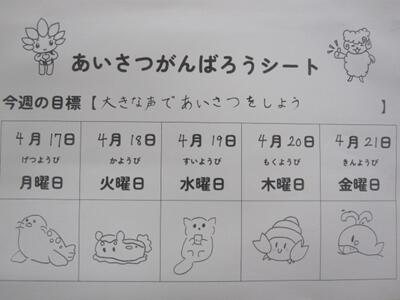 あいさつがんばろうシート
今週の目標【大きな声であいさつをしよう】
4月17日 4月18日 4月19日 4月20日 4月21日
げつようび かようび すいようび もくようび きんようび
月曜日 火曜日 水曜日 木曜日 金曜日